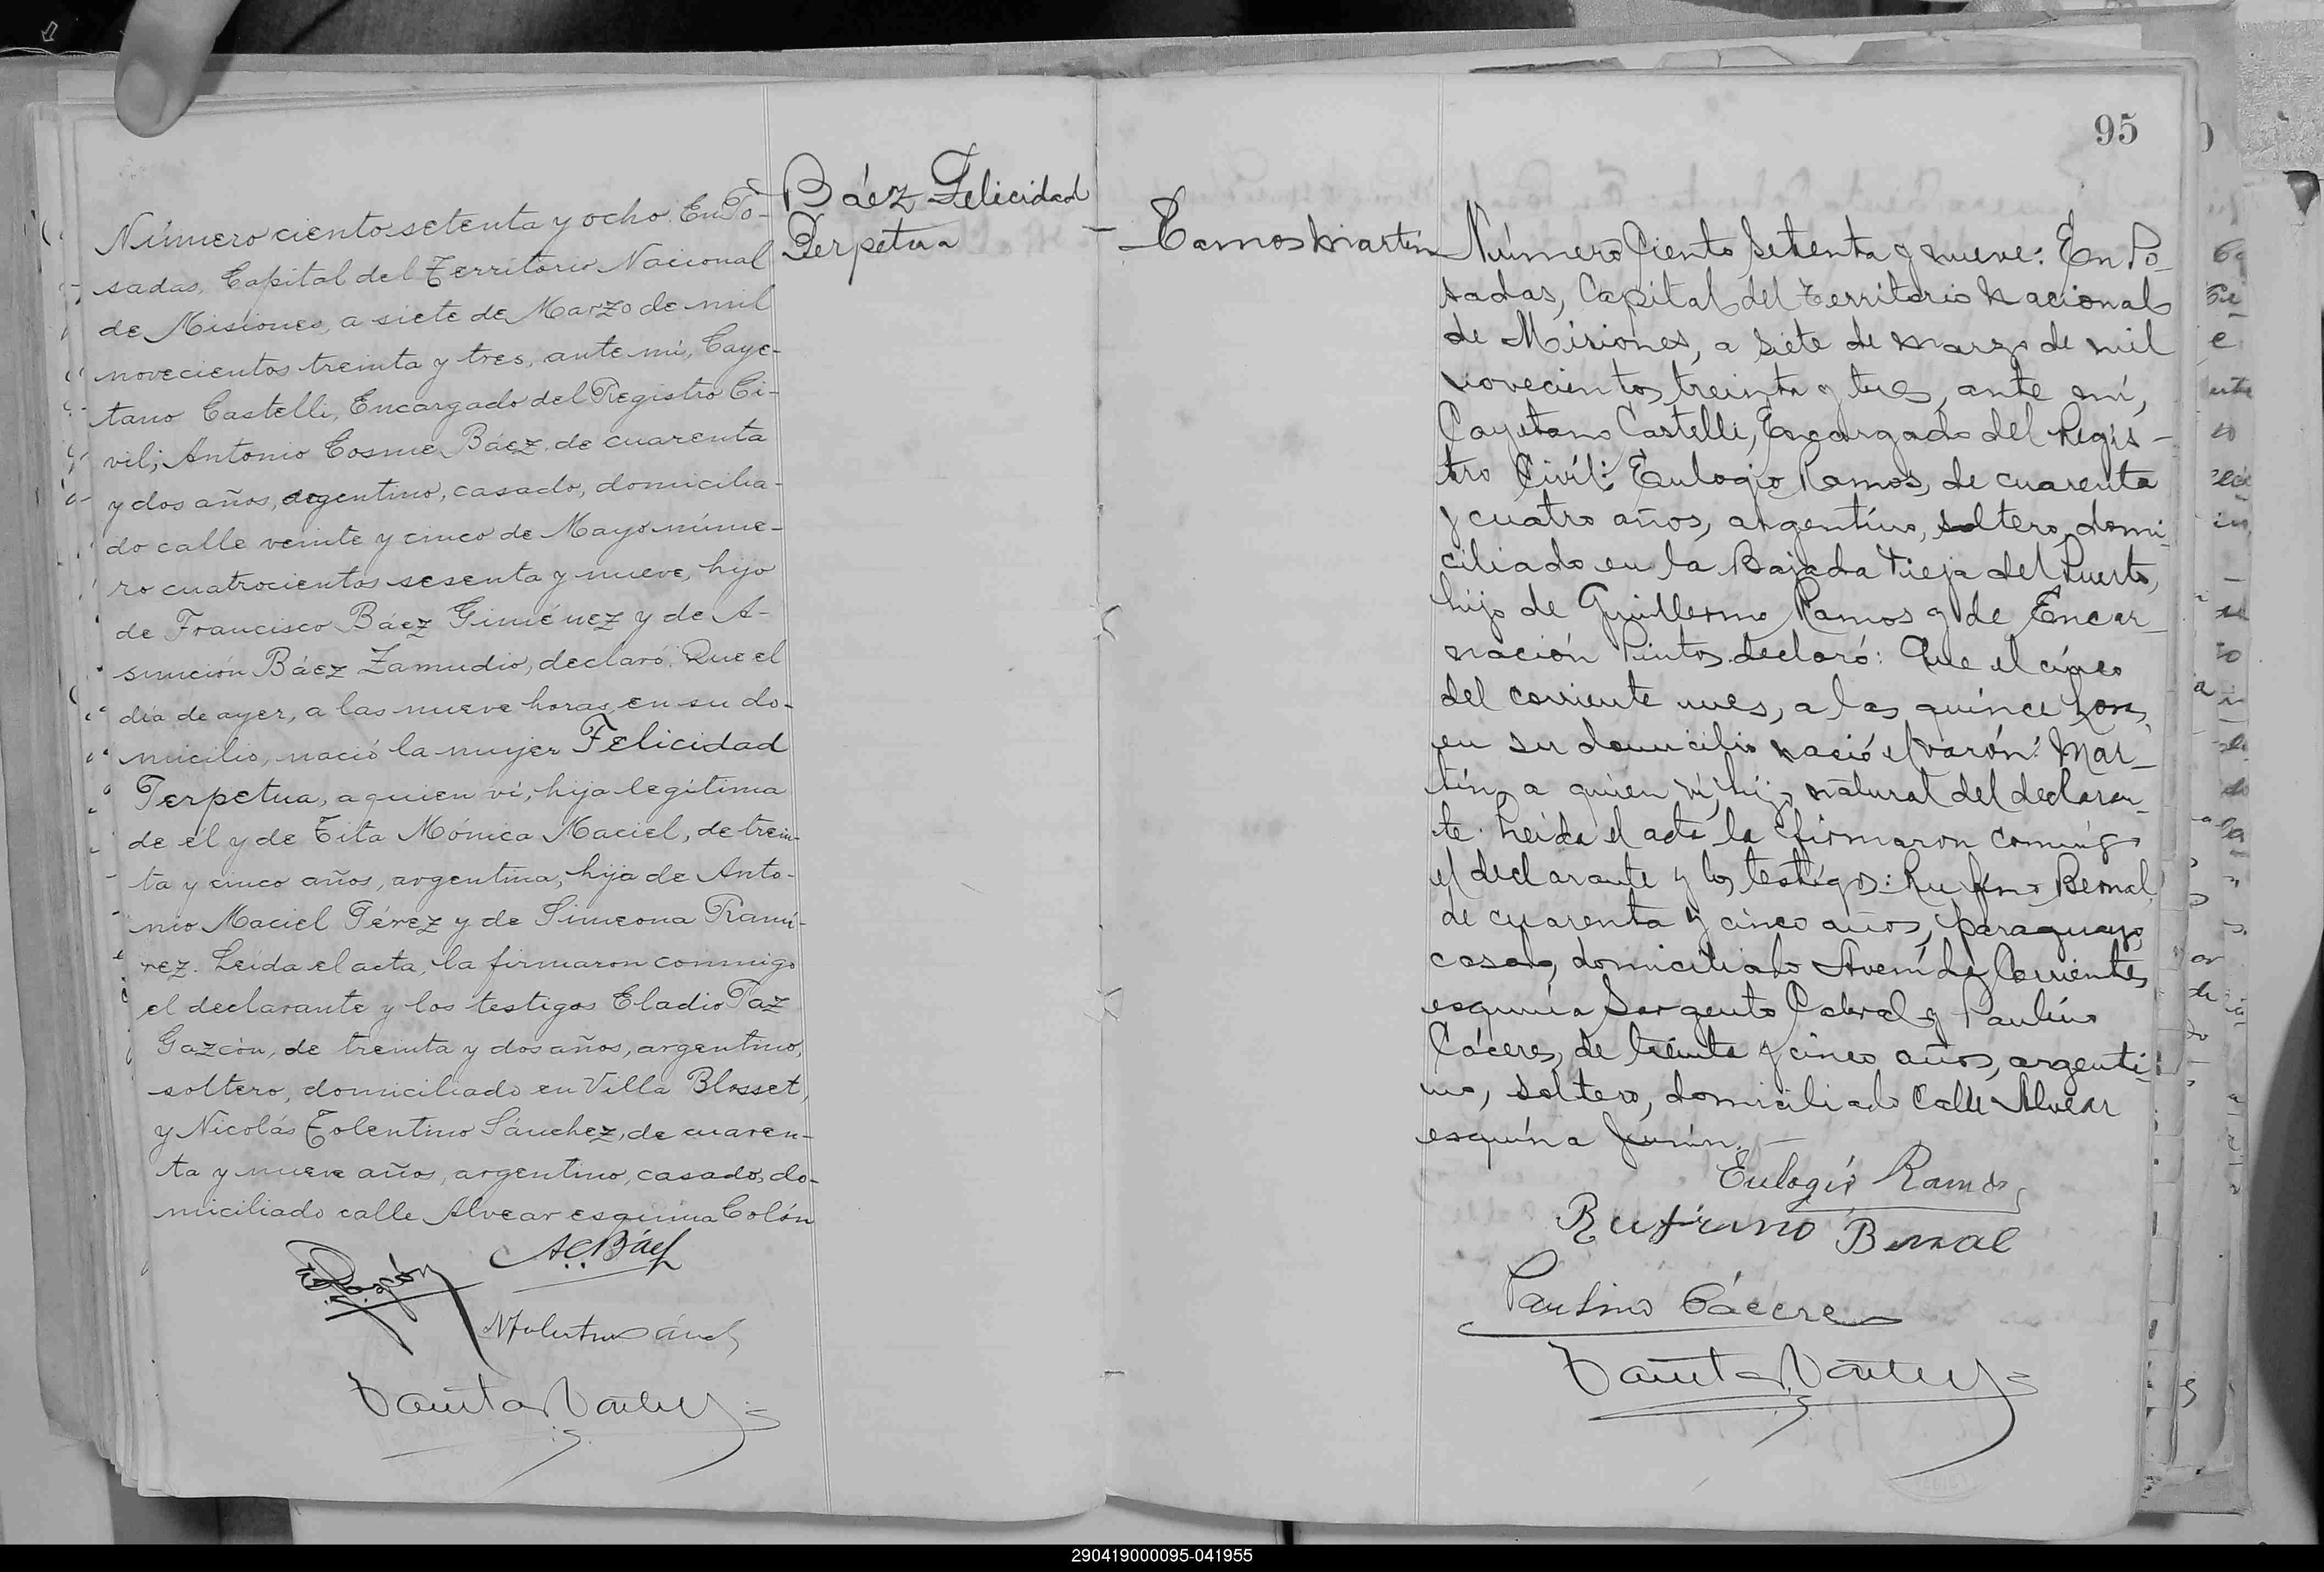 Báez Felicidad
Perpetua
Número ciento setenta y ocho. En Po-
sadas, Capital del Territorio Nacional
de Misiones, a siete de Marzo de mil
novecientos treinta y tres, ante mí, Caye-
tano Castelli, Encargado del Registro Ci-
vil; Antonio Cosme Báez, de cuarenta
y dos años, argentino, casado, domicilia-
do calle veinte y cinco de Mayo núme-
ro cuatrocientos sesenta y nueve, hijo
de Francisco Báez Giménez y de A-
sunción Báez Zamudio, declaró: Que el
día de ayer, a las nueve horas, en su do-
micilio, nació la mujer Felicidad
Perpetua, a quien ví, hija legítima
de él y de Tita Mónica Maciel, de trein-
ta y cinco años, argentina, hija de Anto-
nio Maciel Pérez y de Simeona Ramí-
rez. Leída el acta, la firmaron conmigo
el declarante y los testigos Eladio Paz
Gazcón, de treinta y dos años, argentino,
soltero, domiciliado en Villa Blosset,
y Nicolás Tolentino Sánchez, de cuaren-
ta y nueve años, argentino, casado, do-
miciliado calle Alvear esquina Colón
A.C. Báez
95
Ramos Martín
Número Ciento Setenta y nueve: En Po-
sadas, Capital del Territorio Nacional
de Misiones, a siete de marzo de mil
novecientos treinta y tres, ante mí,
Cayetano Castelli, Encargado del Regis-
tro Civil: Eulogio Ramos, de cuarenta
y cuatro años, argentino, soltero, domi-
ciliado en la Bajada Vieja del Puerto,
hijo de Guillermo Ramos y de Encar-
nación Pintos, declaró: Que el cinco
del corriente mes, a las quince horas,
en su domicilio nació el varón: Mar-
tín, a quien ví, hijo natural del declaran-
te. Leída el acta la firmaron conmigo
el declarante y los testigos: Rufino Bernal,
de cuarenta y cinco años, paraguayo,
casado, domiciliado Avenida Corrientes
esquina Sargento Cabral y Paulino
Cáceres, de treinta y cinco años, argenti-
no, soltero, domiciliado Calle Alvear
esquina Junín.
Eulogio Ramos
Rufirno Bernal
Paulino Cácere
290419000095-041955